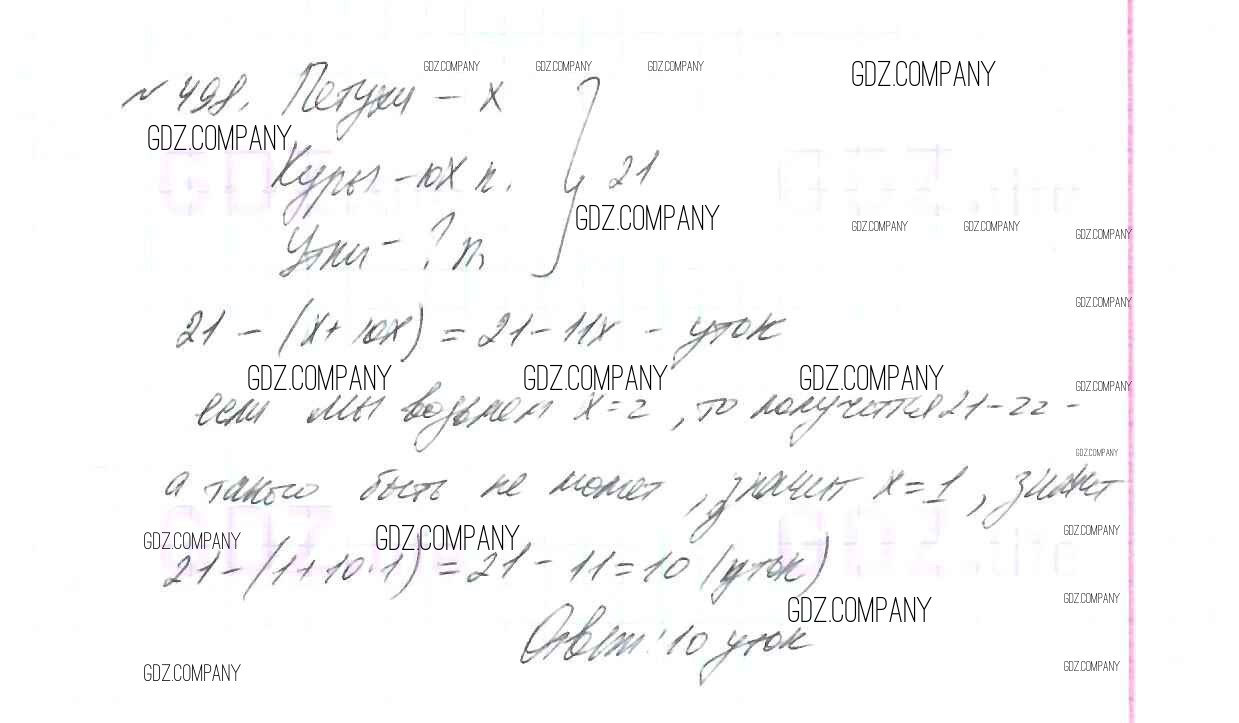 GDZ.COMPANY GDZ.COMPANY GDZ.COMPANY GDZ.COMPANY
№ 498. Петухи – х
GDZ.COMPANY
Куры – 10х п. } 21
GDZ.COMPANY GDZ.COMPANY GDZ.COMPANY GDZ.COMPANY
Утки – ? п.
GDZ.COMPANY
21 – (х + 10х) = 21 – 11х – уток
GDZ.COMPANY GDZ.COMPANY GDZ.COMPANY GDZ.COMPANY
если мы возьмем х = 2, то получится 21 – 22 –
GDZ.COMPANY
а такого быть не может, значит х = 1, значит
GDZ.COMPANY GDZ.COMPANY GDZ.COMPANY
21 – (1 + 10 · 1) = 21 – 11 = 10 (уток)
GDZ.COMPANY GDZ.COMPANY
Ответ: 10 уток
GDZ.COMPANY GDZ.COMPANY